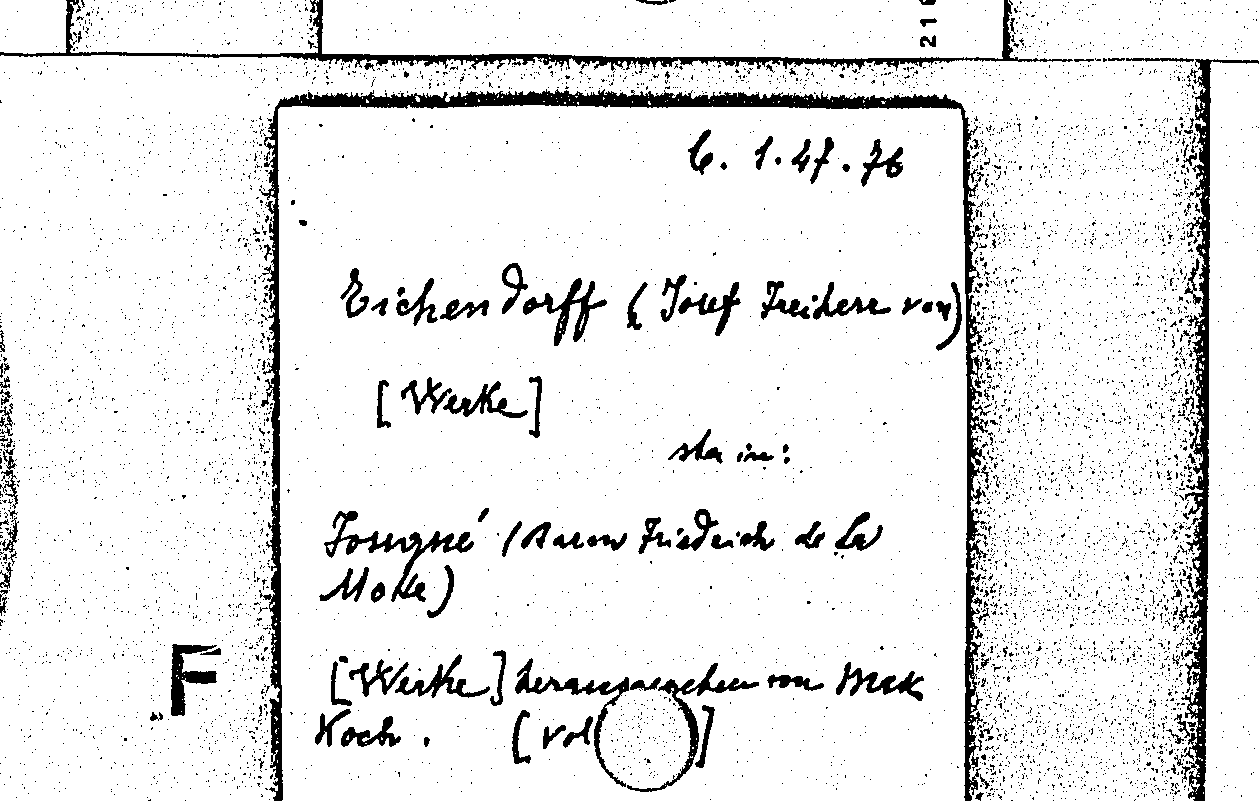 21
C. 1.47.76
Eichendorff (Josef Freiherr von)
[Werke]
sta in:
Fouqué (Baron Friedrich de La
Motte)
[Werke] herausgegeben von Max
Koch. [Vol ]
F